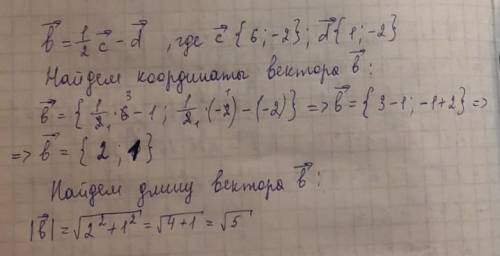 b⃗ = 1/2 c⃗ - d⃗ , где c⃗ {6; -2}; d⃗ {1; -2}
Найдем координаты вектора b⃗ :
b⃗ = {1/2 · 6 - 1; 1/2 · (-2) - (-2)} => b⃗ = {3-1; -1+2} =>
=> b⃗ = {2; 1}
Найдем длину вектора b⃗ :
|b⃗| = √(2² + 1²) = √(4+1) = √5